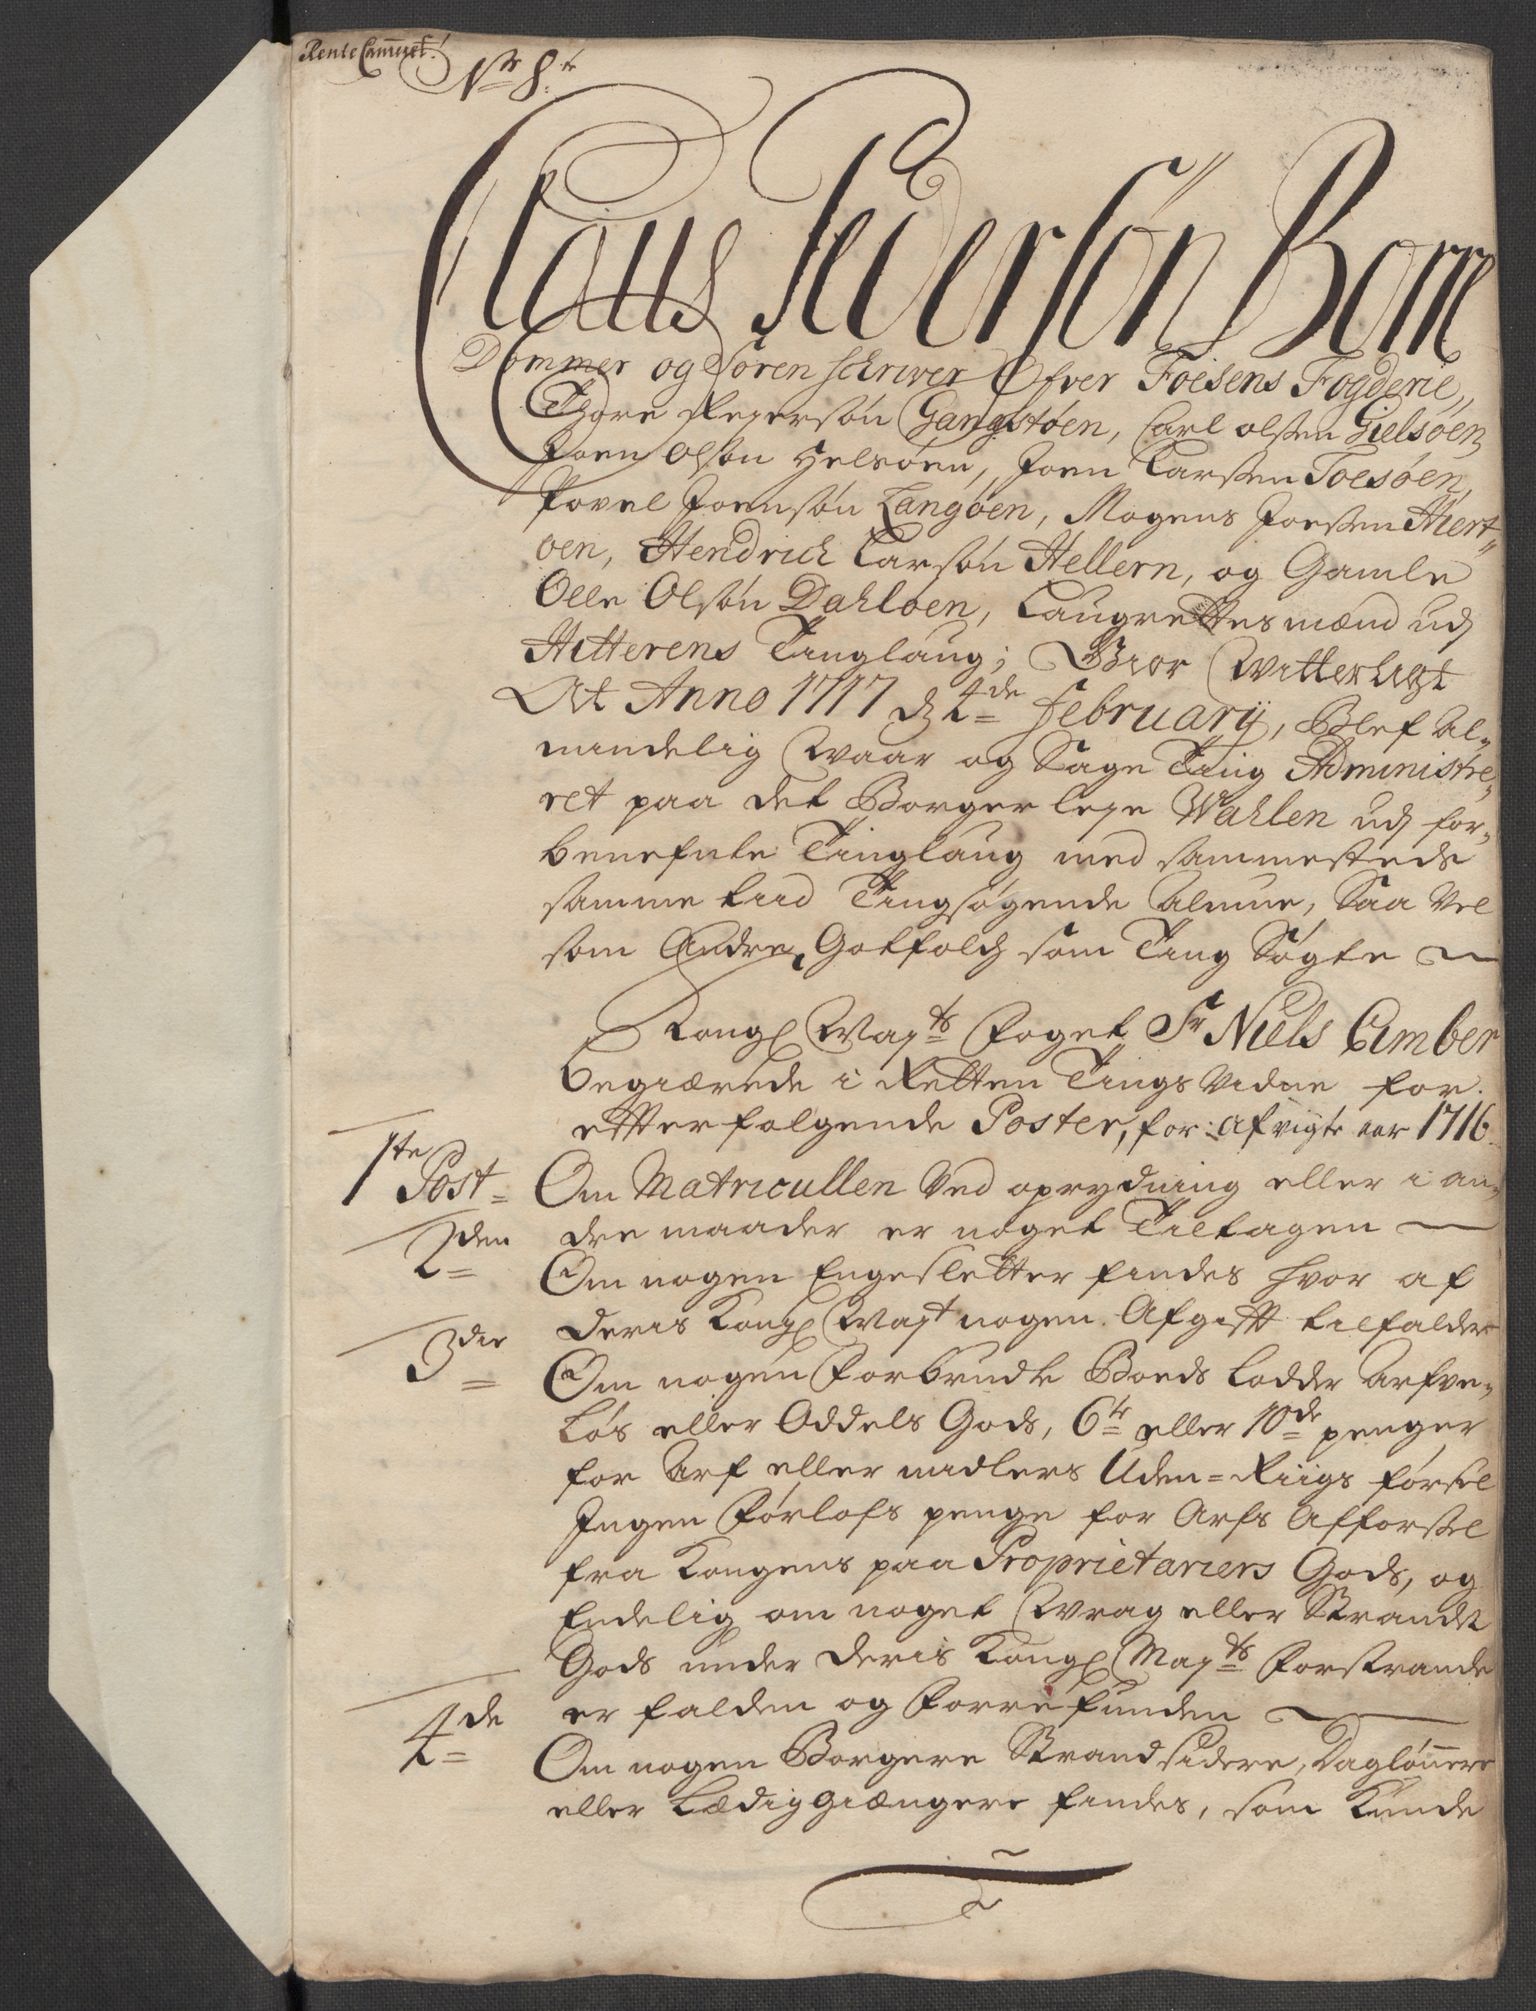 Rente Cameret.
No 8.
Claus Pedersøn Borre
Dommer og Sorenschriver Ofver Foesens Fogderie,
Thore Rejersøn Gangstøen, Carl olsen Gielsøen
Joen Olsøn Helsøen, Joen Larsen Foesøen,
Povel Joensøn Langøen, Mogens Joesen Hiert-
øen, Hendrich Larsøn Hellern, og Gamle
Olle Olsøn Dahløen, Laugrettesmænd udj
Hitterens Tinglaug; Giør Witterligt
At Anno 1717 d 4de Februarij, Blef al-
mindelig Waar og Sage Ting Administre-
ret paa det Borger leye Wahlen udj for-
benefnte Tinglaug med sammesteds
samme tiid Tingsøgende Almue, Saa vel
som Andre Gotfolch som Ting Søgte
Kongl Mayts Foget Sr Niels Ember
begiærede i Retten Tings Vidne for
efterfølgende Poster, for afvigte aar 1716.
1te Post Om Matricullen ved oprydning eller i an-
dre maader er noget Tiltagen
2den Om nogen Engesletter findes hvor af
deris Kongl Mayt nogen Afgifft tilfalder
3die Om nogen Forbrudte Boeds lodder Arfve-
løs eller Oddels Gods, 6te eller 10de penger
for Arf eller midlers Uden-Riigs førsel
Ingen Førlofs penge for Arfs Afførsel
fra Kongens paa Proprietariers Gods, og
Endelig om noget Wrag eller Strandet
Gods under deris Kongl Mayts Forstrande
er falden og Forrefunden
4de Om nogen Borgere Strandsidere, Dagløn̄ere
eller Lædiggiængere findes, som Kunde